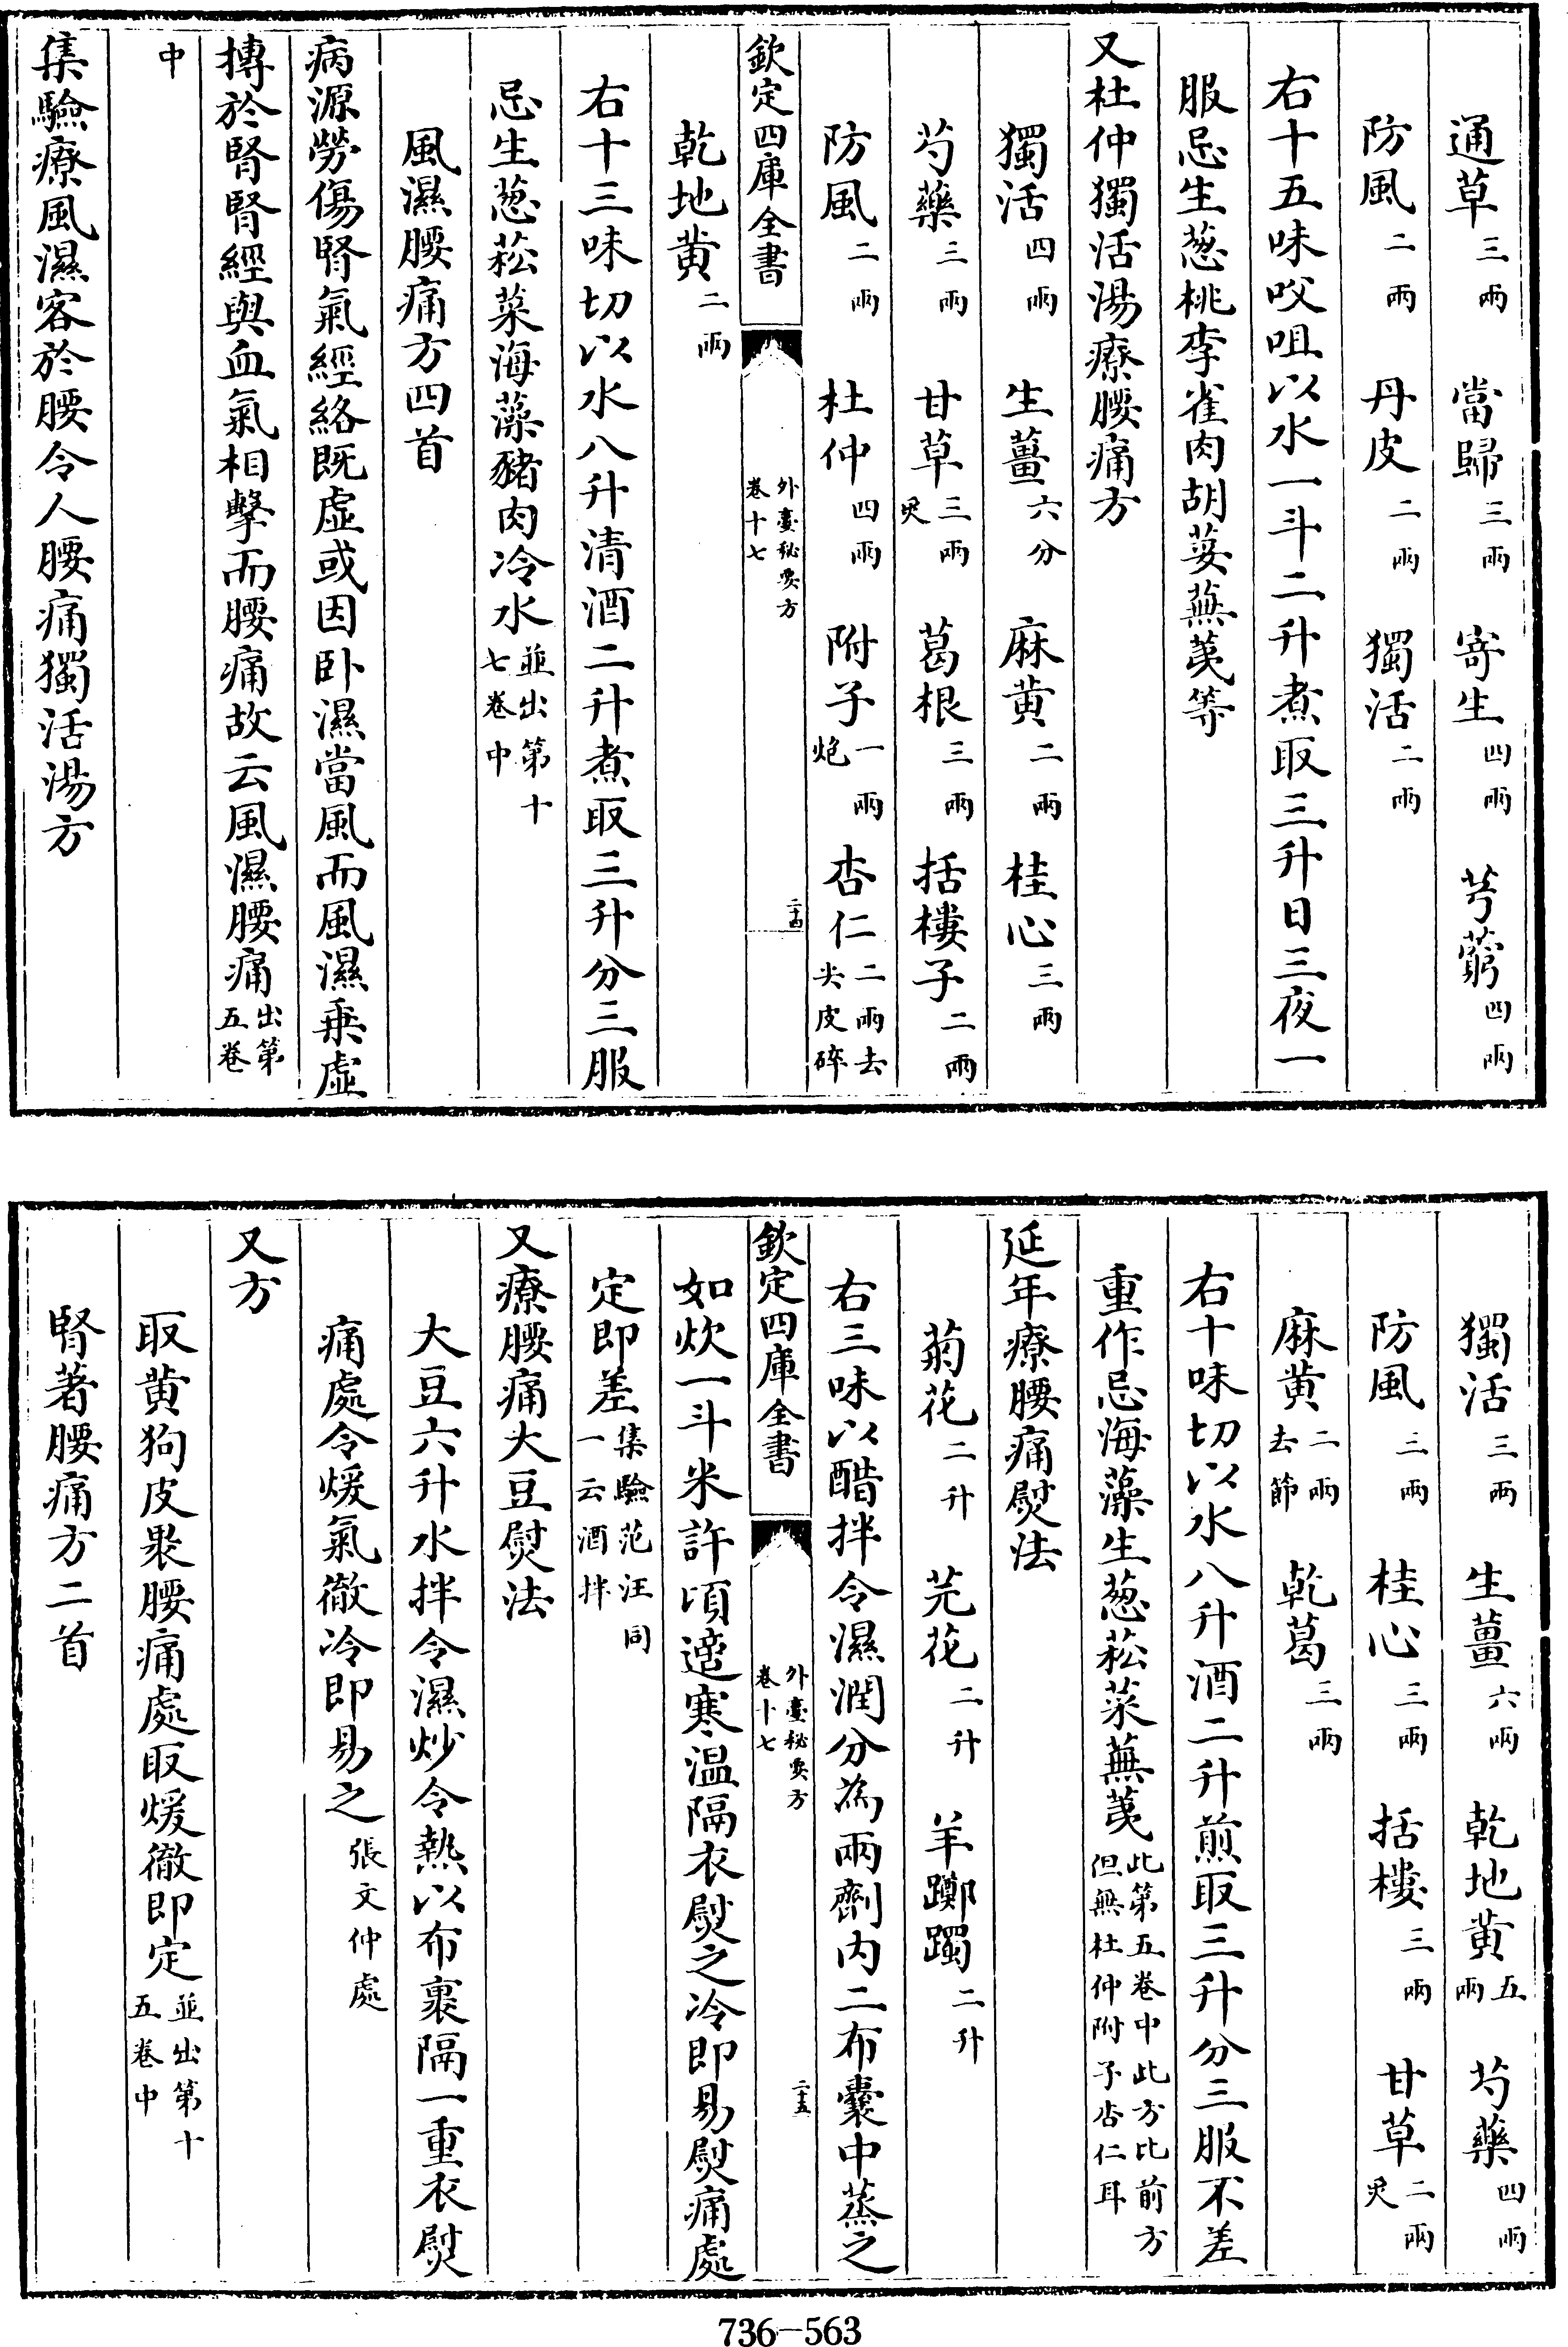 通草三兩　當歸三兩　寄生四兩　芎藭四兩
防風二兩　丹皮二兩　獨活二兩
右十五味㕮咀以水一斗二升煮取三升日三夜一
服忌生葱桃李雀肉胡荽蕪荑等
又杜仲獨活湯療腰痛方
獨活四兩　生薑六分　麻黄二兩　桂心三兩
芍藥三兩　甘草三兩炙　葛根三兩　括樓子二兩
防風二兩　杜仲四兩　附子一兩炮　杏仁二兩去尖皮碎
欽定四庫全書　外臺秘要方卷十七　二十四
乾地黄二兩
右十三味切以水八升清酒二升煮取三升分三服
忌生葱菘菜海藻豬肉冷水並出第十七卷中
風濕腰痛方四首
病源勞傷腎氣經絡既虛或因卧濕當風而風濕乗虛
摶於腎腎經與血氣相擊而腰痛故云風濕腰痛出第五卷
中
集驗療風濕客於腰令人腰痛獨活湯方
獨活三兩　生薑六兩　乾地黄五兩　芍藥四兩
防風三兩　桂心三兩　括樓三兩　甘草二兩炙
麻黄二兩去節　乾葛三兩
右十味切以水八升酒二升煎取三升分三服不差
重作忌海藻生葱菘菜蕪荑此第五卷中此方比前方但無杜仲附子杏仁耳
延年療腰痛熨法
菊花二升　芫花二升　羊躑躅二升
右三味以醋拌令濕潤分為兩劑内二布囊中蒸之
欽定四庫全書　外臺秘要方卷十七　二十五
如炊一斗米許頃適寒温隔衣熨之冷即易熨痛處
定即差集驗范汪同一云酒拌
又療腰痛大豆熨法
大豆六升水拌令濕炒令熱以布裹隔一重衣熨
痛處令煖氣徹冷即易之張文仲處
又方
取黄狗皮褁腰痛處取煖徹即定並出第十五卷中
腎著腰痛方二首
736—563